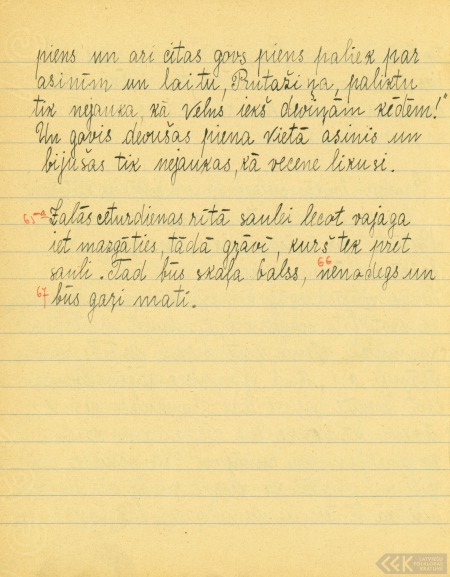 piens un arī citas govs piens paliek par
asinīm un lai tu, Rutažiņa, paliktu
tik nejauka, kā velns iekš deviņām ķēdēm!"
Un govis devušas piena vietā asinis un
bijušas tik nejaukas, kā vecene likusi.
65a Zaļās ceturdienas rītā saulei lecot vajaga
iet mazgāties, tādā grāvī, kurš tek pret
sauli. Tad būs skaļa balss, 66 nenodegs un
67 būs gaŗi mati.
LATVIEŠU FOLKLORAS KRĀTUVE